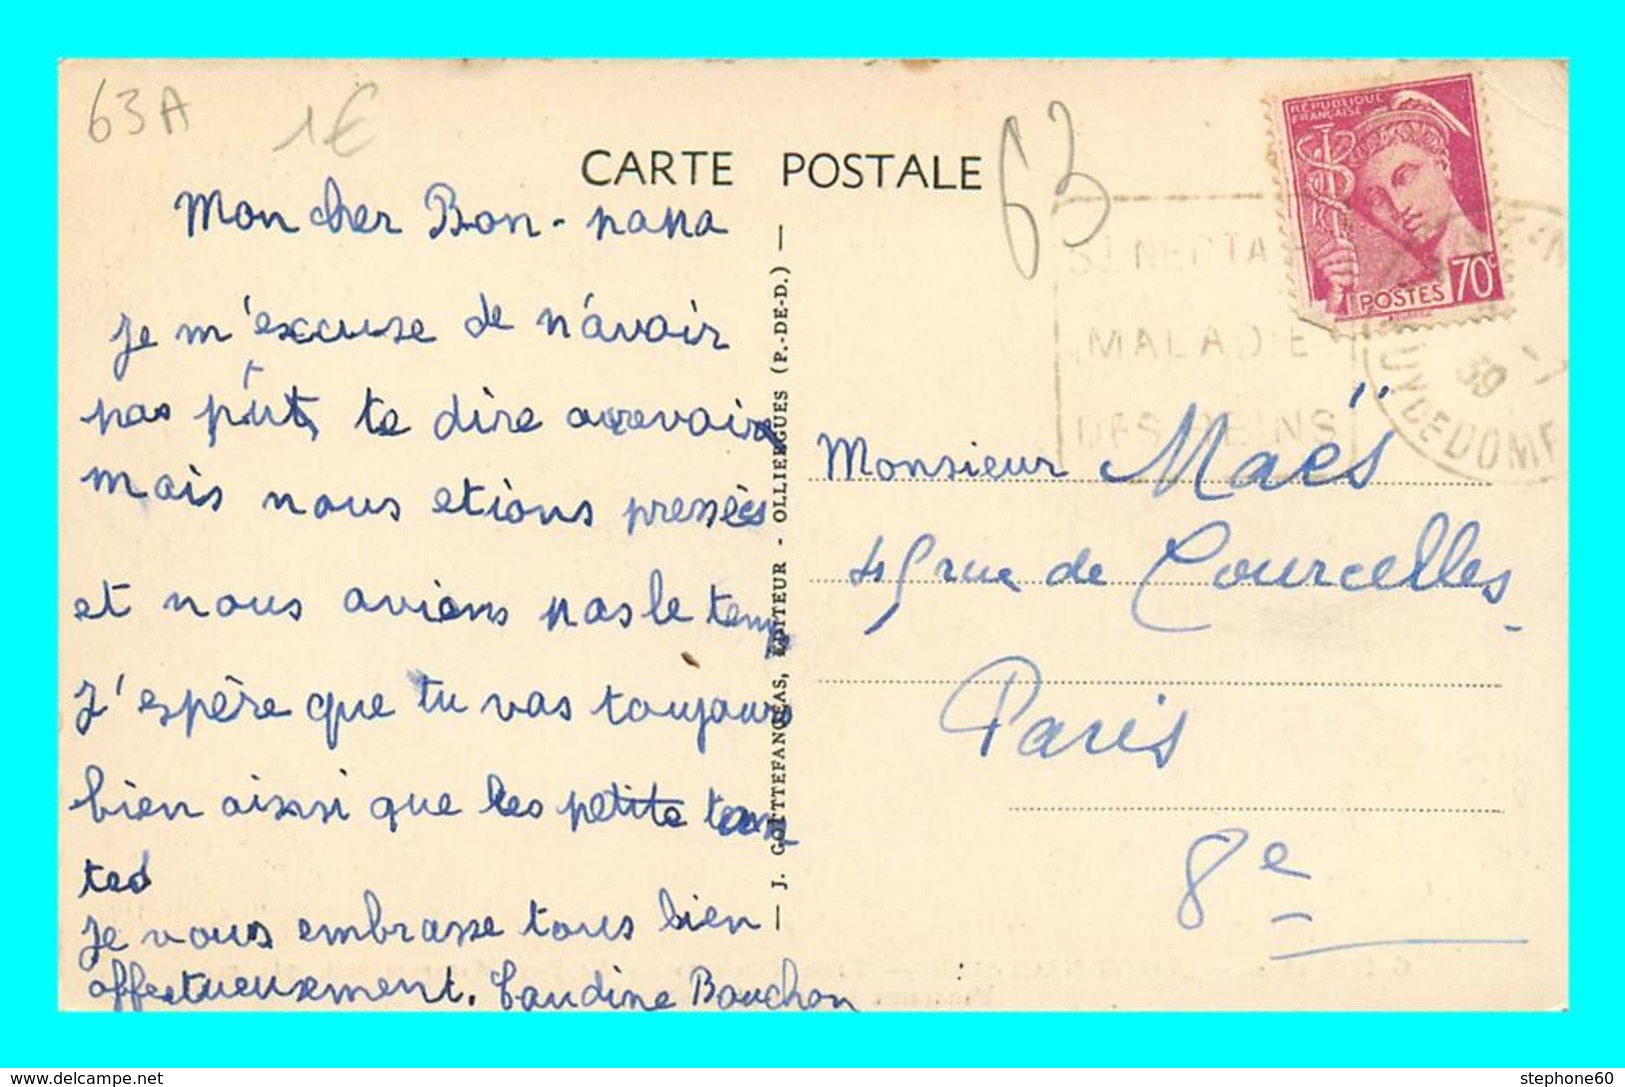 63A
1€
63
CARTE POSTALE
Mon cher Bon-papa
Je m'excuse de n'avoir
pas put te dire aurevoir
mais nous etions pressées
et nous avions pas le temp
J'espère que tu vas toujours
bien ainssi que les petits tan
tes
Je vous embrasse tous bien
affectueusement. Claudine Bouchon
J. GOUTTEFANGEAS, ÉDITEUR - OLLIERGUES (P.-DE-D.)
RÉPUBLIQUE
FRANÇAISE
POSTES 70c
ST NECTAIRE
MALADIE
DES REINS
PUY DE DOME
39
Monsieur Maës
45 rue de Courcelles
Paris
8e
stephone60